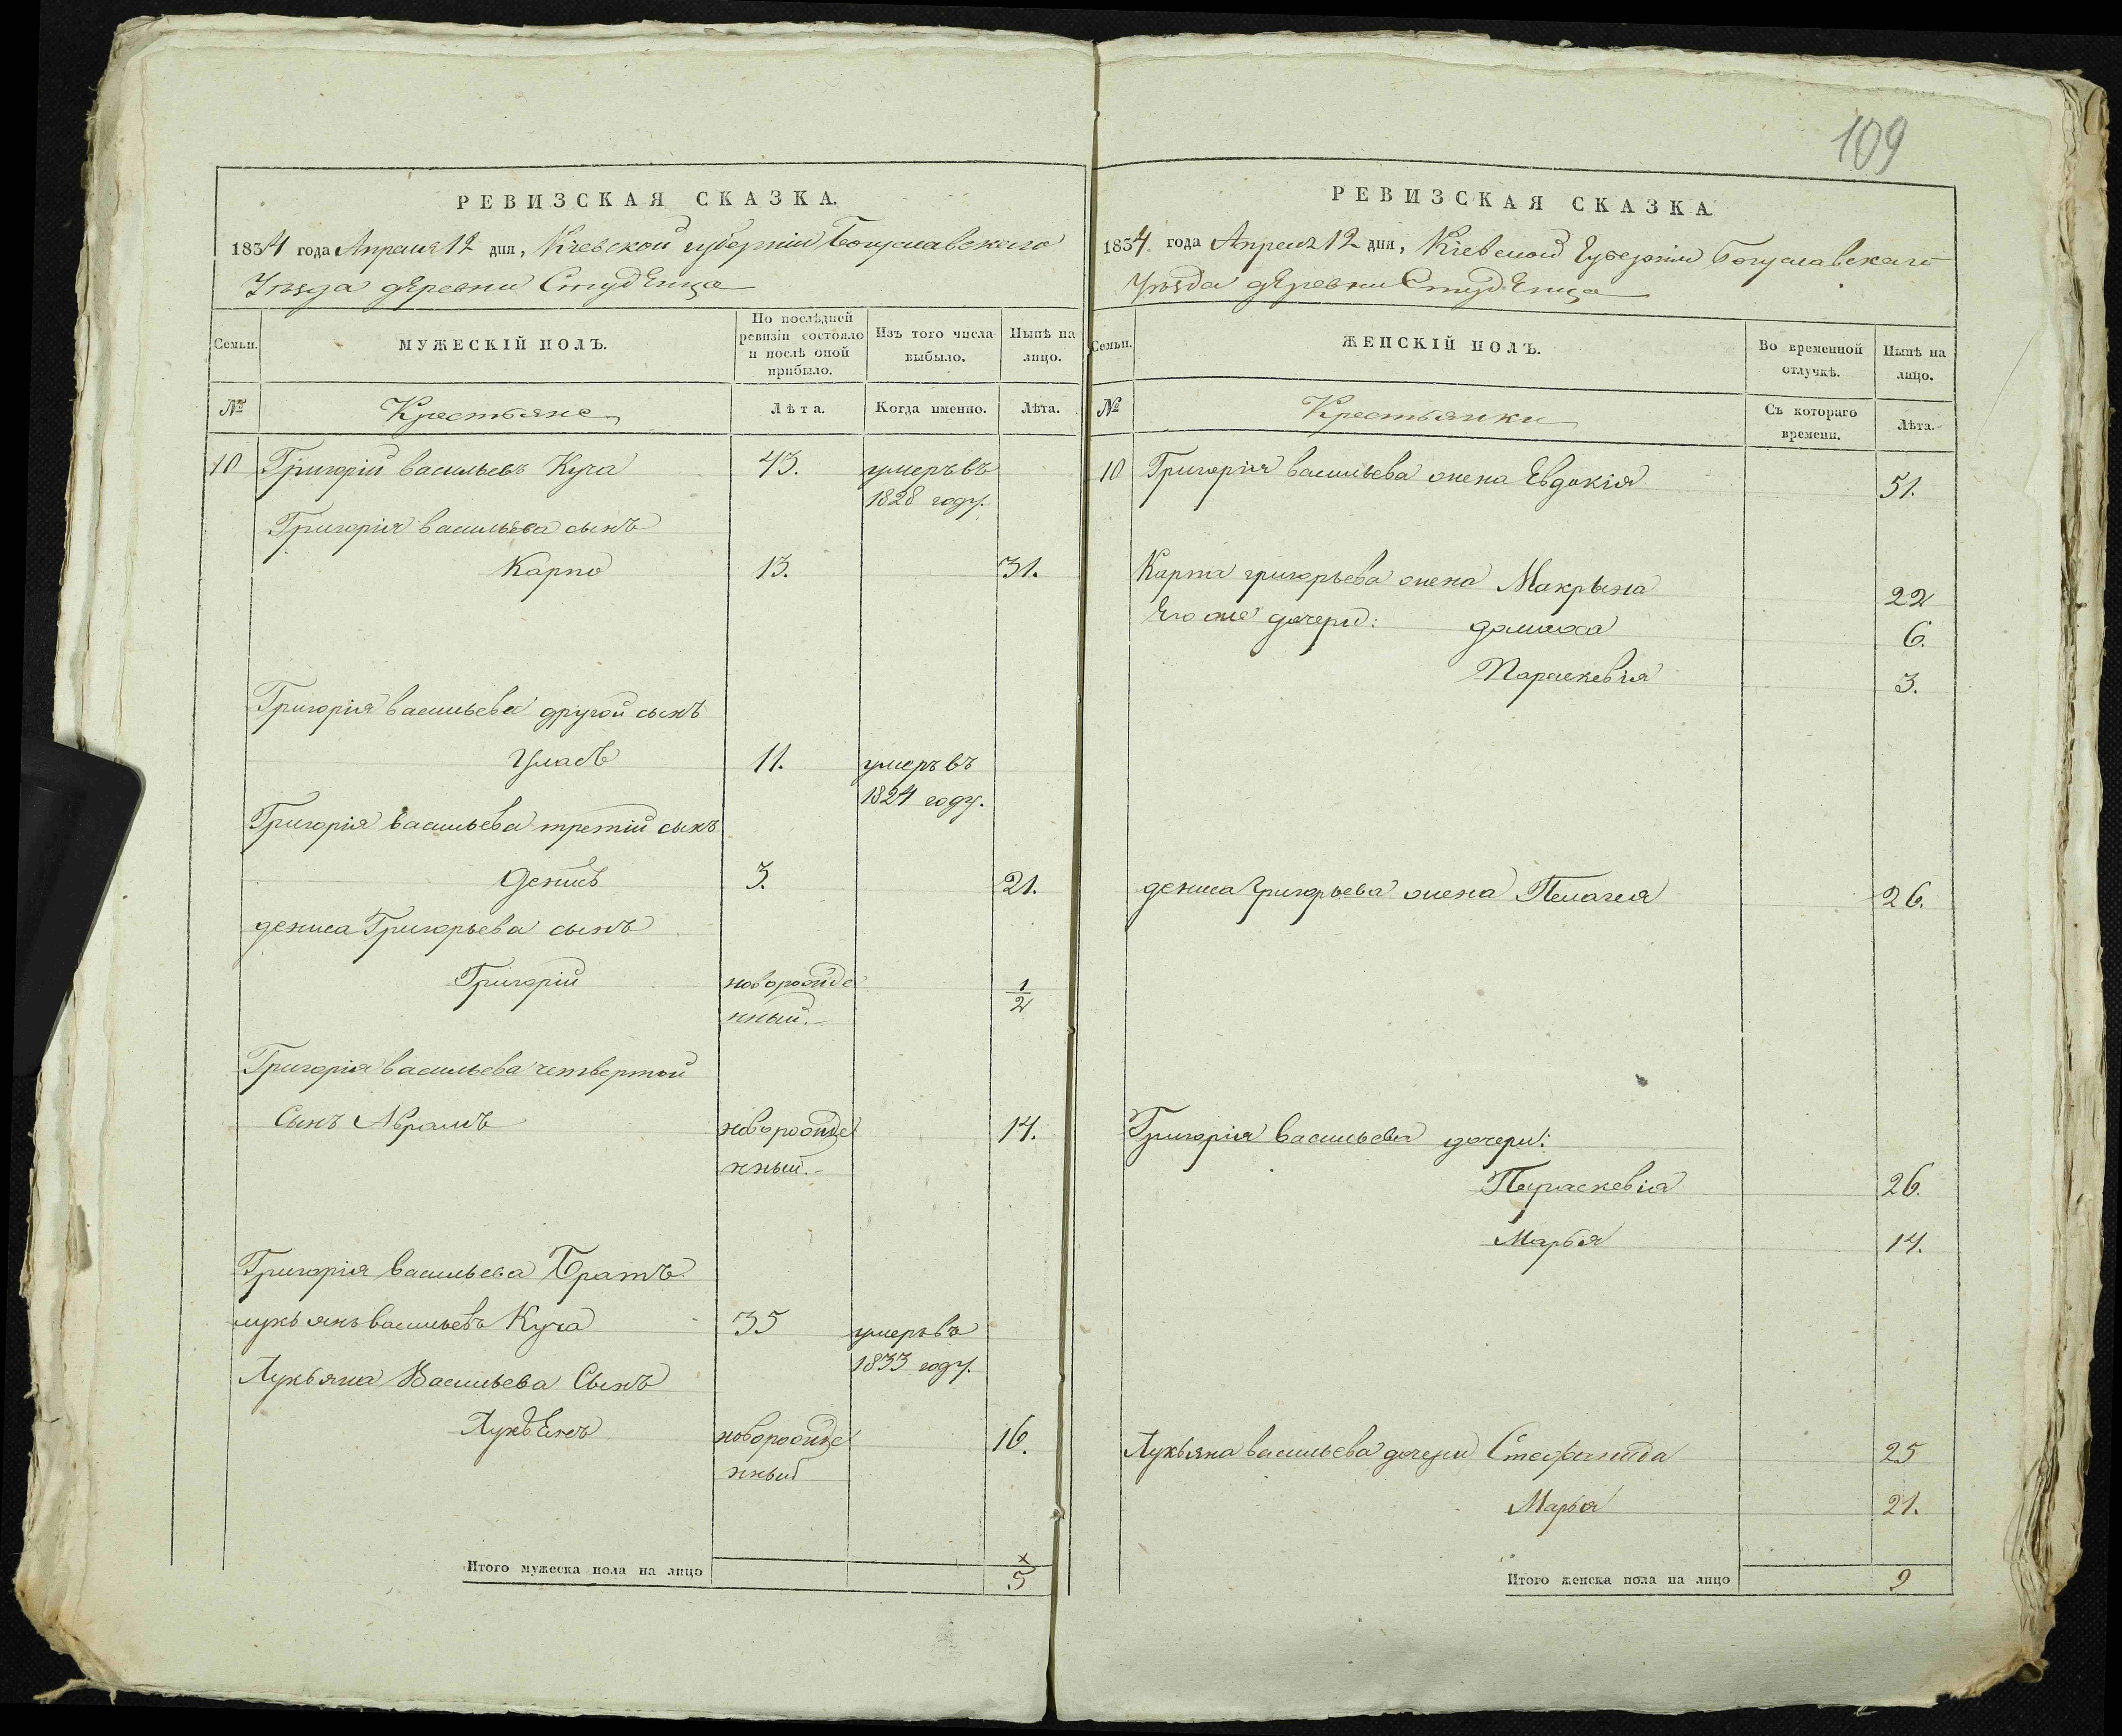 109
РЕВИЗСКАЯ СКАЗКА.
1834 года Апреля 12 дня, Кіевской губерніи Богуславскаго
Уѣзда деревни Студенца
Семьи.
МУЖЕСКІЙ ПОЛЪ.
По послѣдней ревизіи состояло и послѣ оной прибыло.
Изъ того числа выбыло.
Нынѣ на лицо.
№
Крестьяне
Лѣта.
Когда именно.
Лѣта.
10 Григорій васильевъ Куча 43. умеръ въ
1828 году.
Григорія васильева сынъ
Карпо 13. 31.
Григорія васильева другой сынъ
11. умеръ въ
1824 году.
Григорія васильева третій сынъ
Денисъ 3. 21.
дениса Григорьева сынъ
Григорій новорожде 1/2
нный.
Григорія васильева четвертой
Сынъ Абрамъ новорожде 14.
нный.
Григорія васильева Братъ
лукьянъ васильевъ Куча 35 умеръ въ
1833 году.
Лукьяна Васильева Сынъ
новорожде 16.
нный
Итого мужеска пола на лицо 5
РЕВИЗСКАЯ СКАЗКА
1834 года Апреля 12 дня, Кіевской Губерніи Богуславскаго
Уѣзда деревни Студенца
Семьи.
ЖЕНСКІЙ ПОЛЪ.
Во временной отлучкѣ.
Нынѣ на лицо.
№
Крестьянки
Съ котораго времени.
Лѣта.
10 Григорія васильева жена Евдокія 51.
Карпа григорьева жена Макрына 22
Его же дочери: домаха 6.
Параскевія 3.
дениса Григорьева жена Пелагея 26.
Григорія васильева дочери:
Параскевія 26.
Марья 14.
Лукьяна васильева дочери Стефанида 25
Марья 21.
Итого женска пола на лицо 9